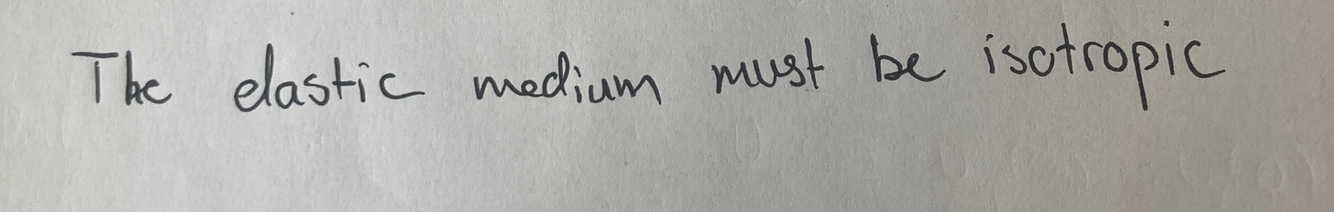 The elastic medium must be isotropic